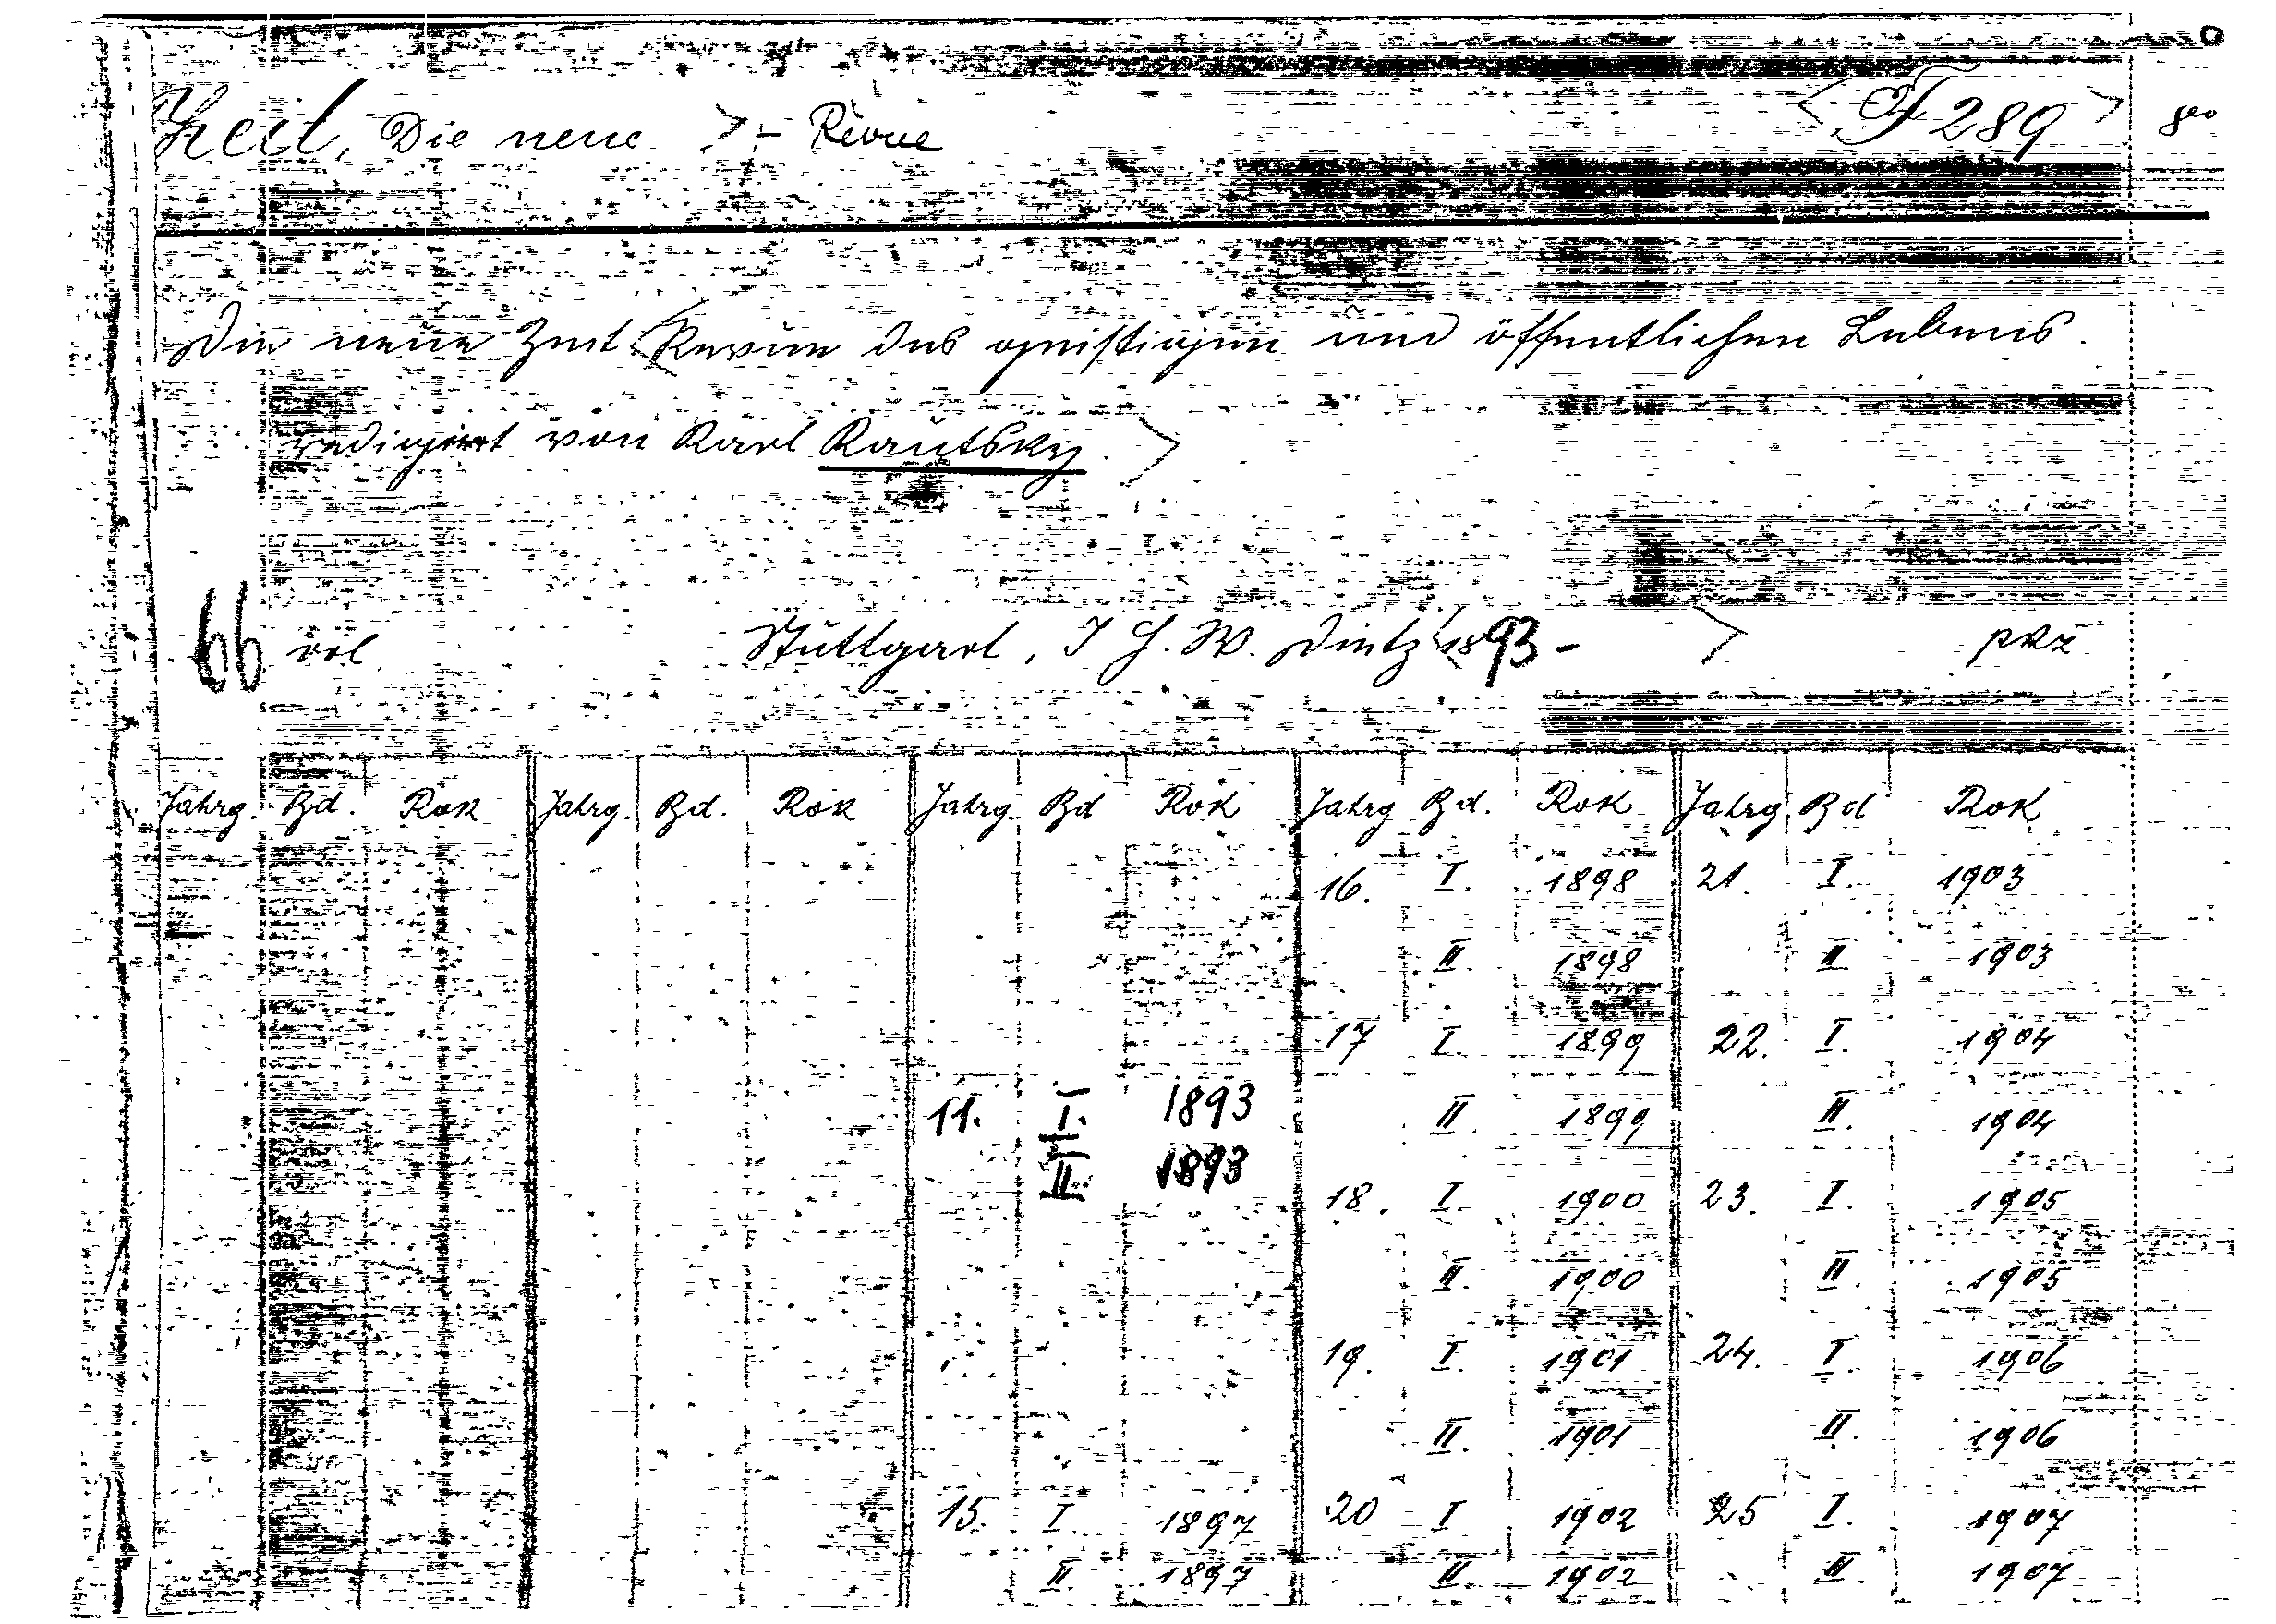 Zeit, Die neue > - Revue < F 289 > 8vo
Die neue Zeit < Revue des geistigen und öffentlichen Lebens.
redigiert von Karl Kautsky. >
66 vol Stuttgart, J. H. W. Dietz < 1893 - >
Jahrg. Bd. Rok Jahrg. Bd. Rok Jahrg. Bd Rok Jahrg Bd. Rok Jahrg. Bd Rok
16. I. 1898 21. I. 1903
II. 1898 II 1903
17 I. 1899 22. I. 1904
11. I. 1893 II. 1899 II. 1904
II. 1893
18. I. 1900 23. I. 1905
II. 1900 II. 1905
19. I. 1901 24. I. 1906
II. 1901 II. 1906
15. I 1897 20 I 1902 25 I. 1907
II. 1897 II. 1902 II. 1907